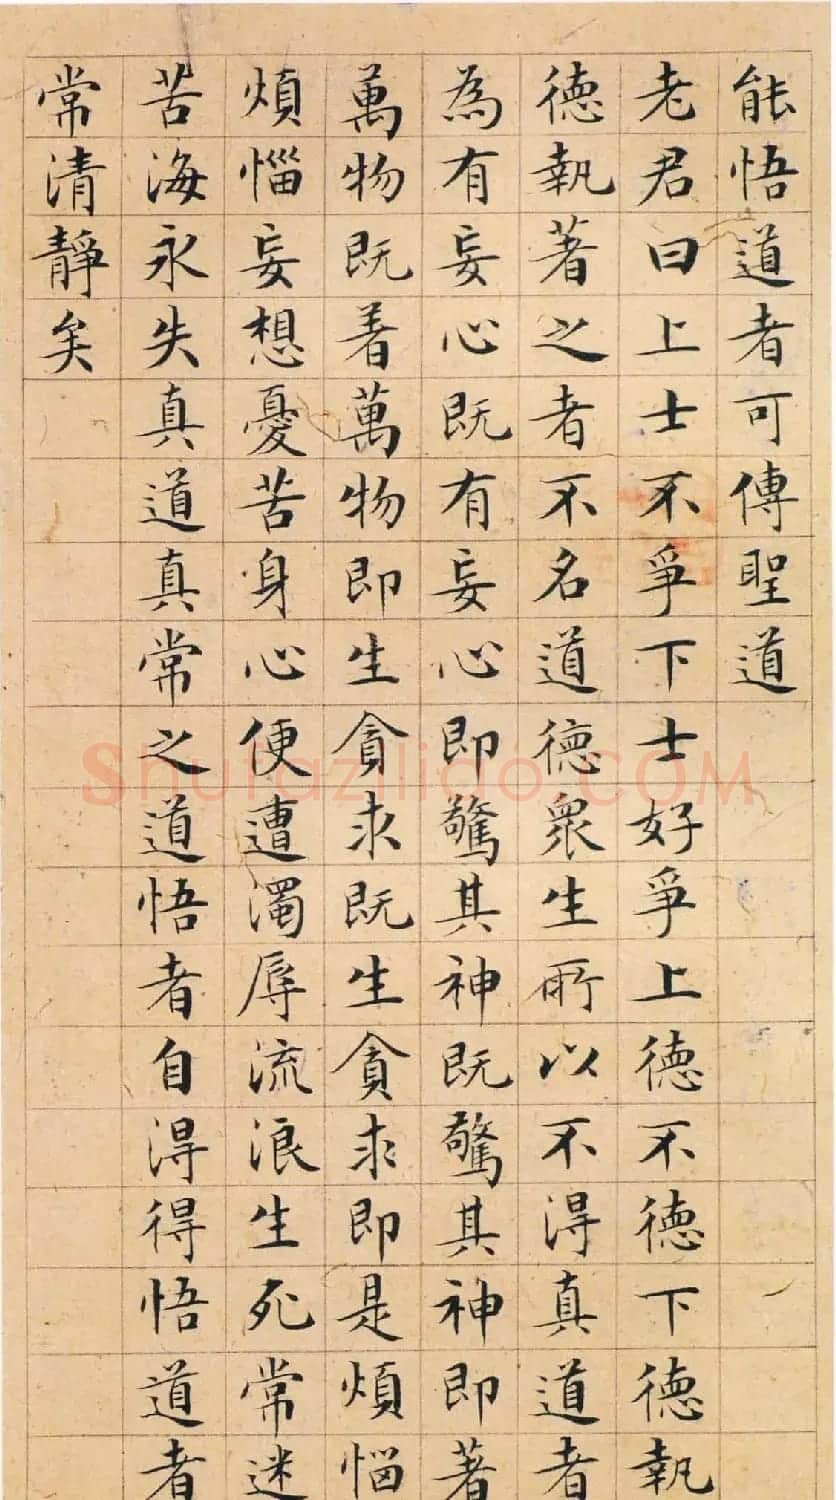 能悟道者可傳聖道
老君曰上士不爭下士好爭上德不德下德執
德執著之者不名道德眾生所以不得真道者
為有妄心既有妄心即驚其神既驚其神即著
萬物既着萬物即生貪求既生貪求即是煩惱
煩惱妄想憂苦身心便遭濁辱流浪生死常迷
苦海永失真道真常之道悟者自得得悟道者
常清靜矣
shufaziliao.COM